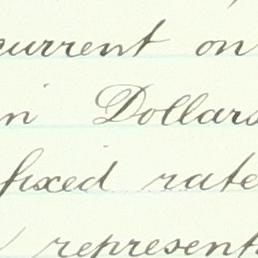 current on
in Dollars
fixed rate
represent